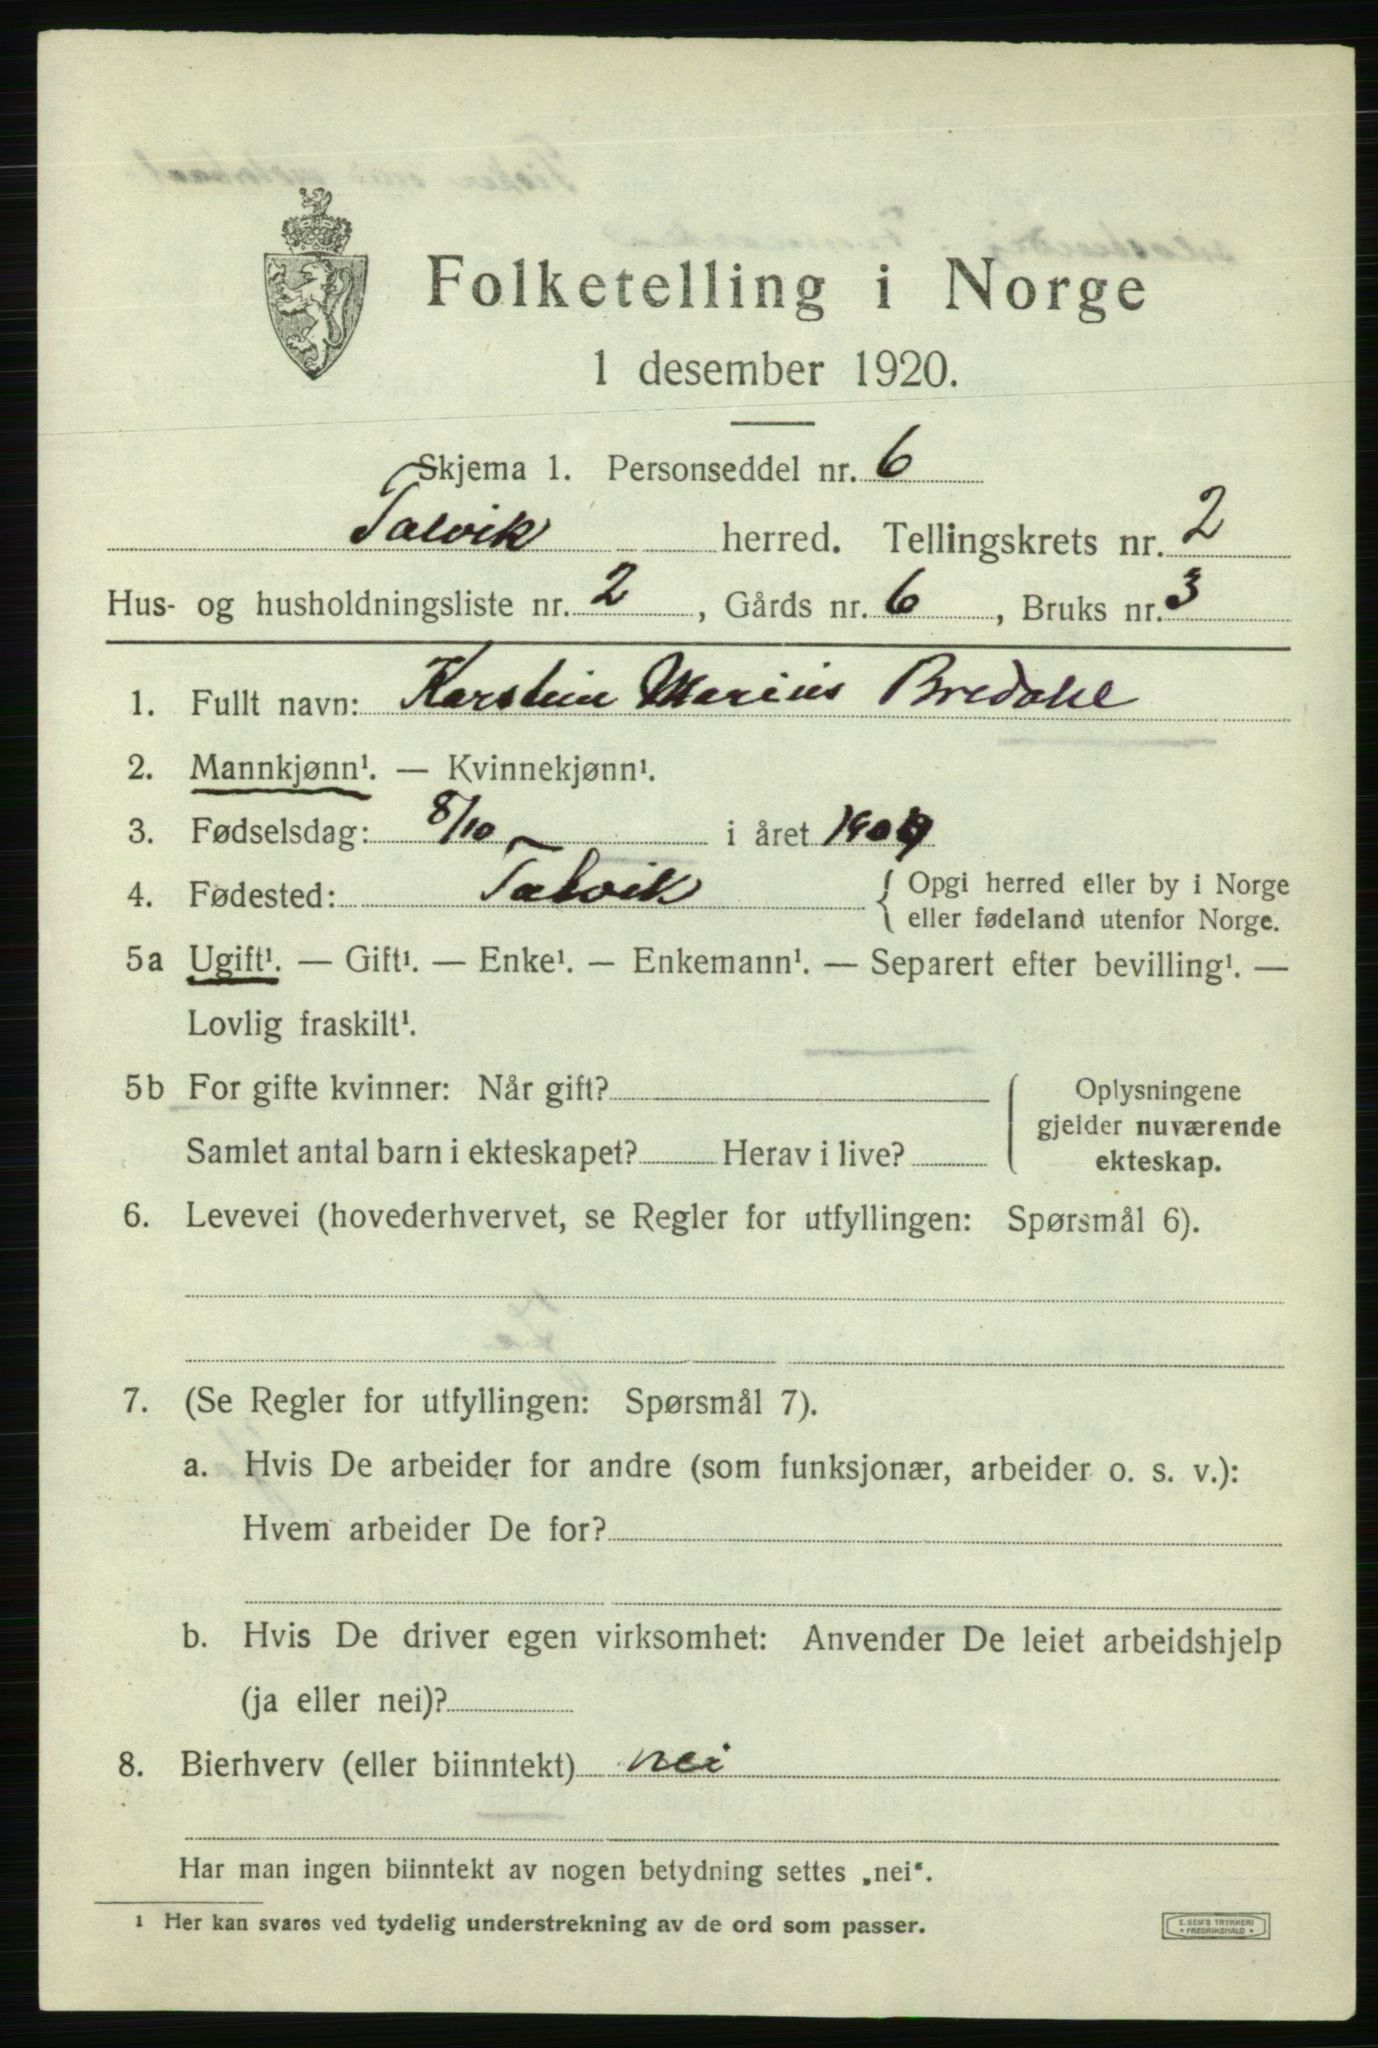 Folketelling i Norge
1 desember 1920.
Skjema 1. Personseddel nr. 6
Talvik herred. Tellingskrets nr. 2
Hus- og husholdningsliste nr. 2, Gårds nr. 6, Bruks nr. 3
1. Fullt navn: Karstein Marius Bredahl
2. Mannkjønn¹. — Kvinnekjønn¹.
3. Fødselsdag: 8/10 i året 1909
4. Fødested: Talvik { Opgi herred eller by i Norge
eller fødeland utenfor Norge.
5a Ugift¹. — Gift¹. — Enke¹. — Enkemann¹. — Separert efter bevilling¹. —
Lovlig fraskilt¹.
5b For gifte kvinner: Når gift? Oplysningene
gjelder nuværende
Samlet antal barn i ekteskapet? Herav i live? ekteskap.
6. Levevei (hovederhvervet, se Regler for utfyllingen: Spørsmål 6).
7. (Se Regler for utfyllingen: Spørsmål 7).
a. Hvis De arbeider for andre (som funksjonær, arbeider o. s. v.):
Hvem arbeider De for?
b. Hvis De driver egen virksomhet: Anvender De leiet arbeidshjelp
(ja eller nei)?
8. Bierhverv (eller biinntekt) nei
Har man ingen biinntekt av nogen betydning settes „nei“.
¹ Her kan svares ved tydelig understrekning av de ord som passer.
E. SEM'S TRYKKERI
• FREDRIKSHALD •